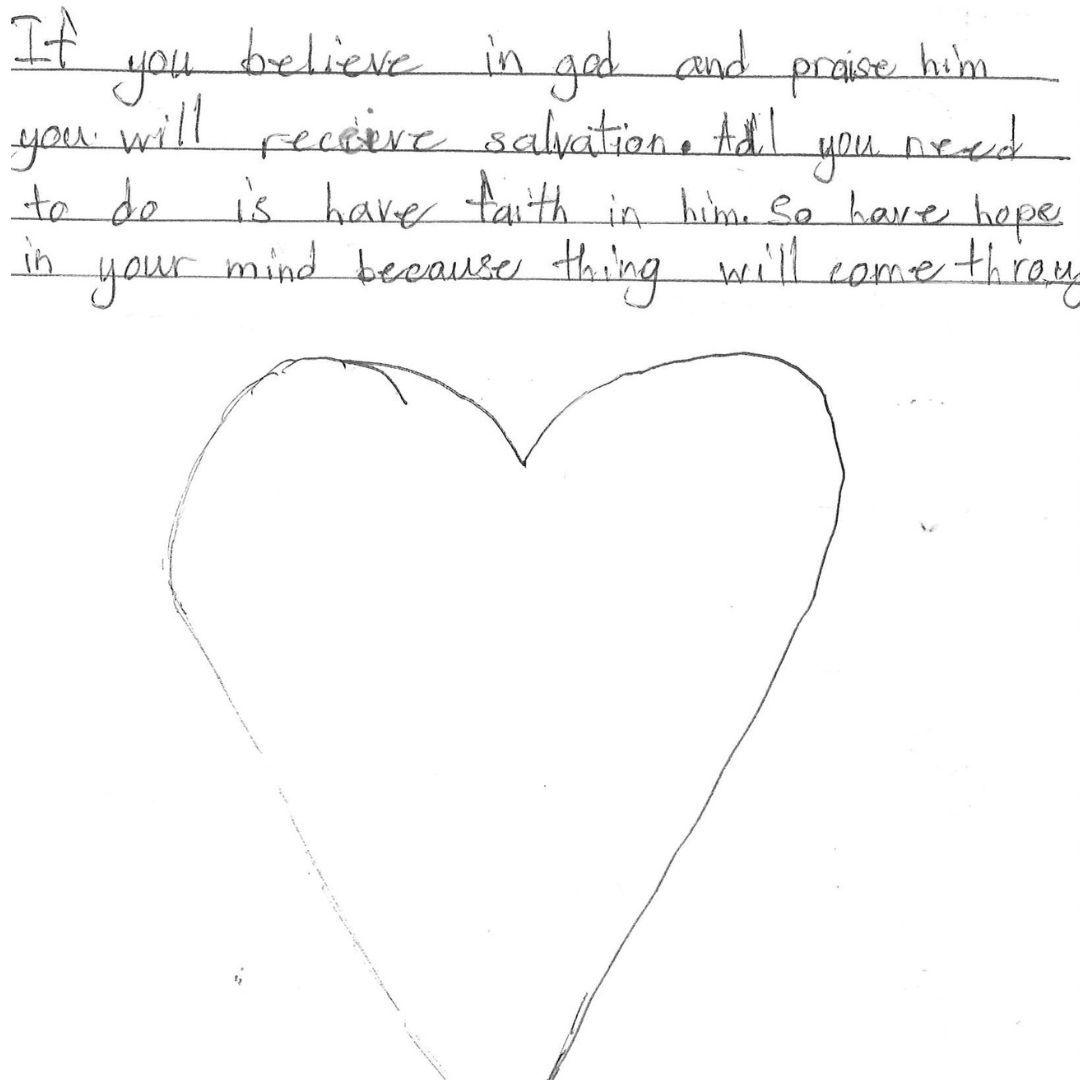 If you believe in god and praise him
you will receive salvation. All you need
to do is have faith in him. So have hope
in your mind because thing will come throu